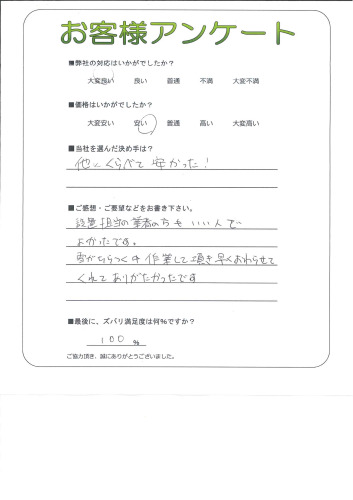 お客様アンケート
■弊社の対応はいかがでしたか？
大変良い 良い 普通 不満 大変不満
■価格はいかがでしたか？
大変安い 安い 普通 高い 大変高い
■当社を選んだ決め手は？
他にくらべて安かった！
■ご感想・ご要望などをお書き下さい。
設置担当の業者の方もいい人で
よかったです。
雪がちらつく中作業して頂き早くおわらせて
くれてありがたかったです
■最後に、ズバリ満足度は何%ですか？
100 %
ご協力頂き、誠にありがとうございました。